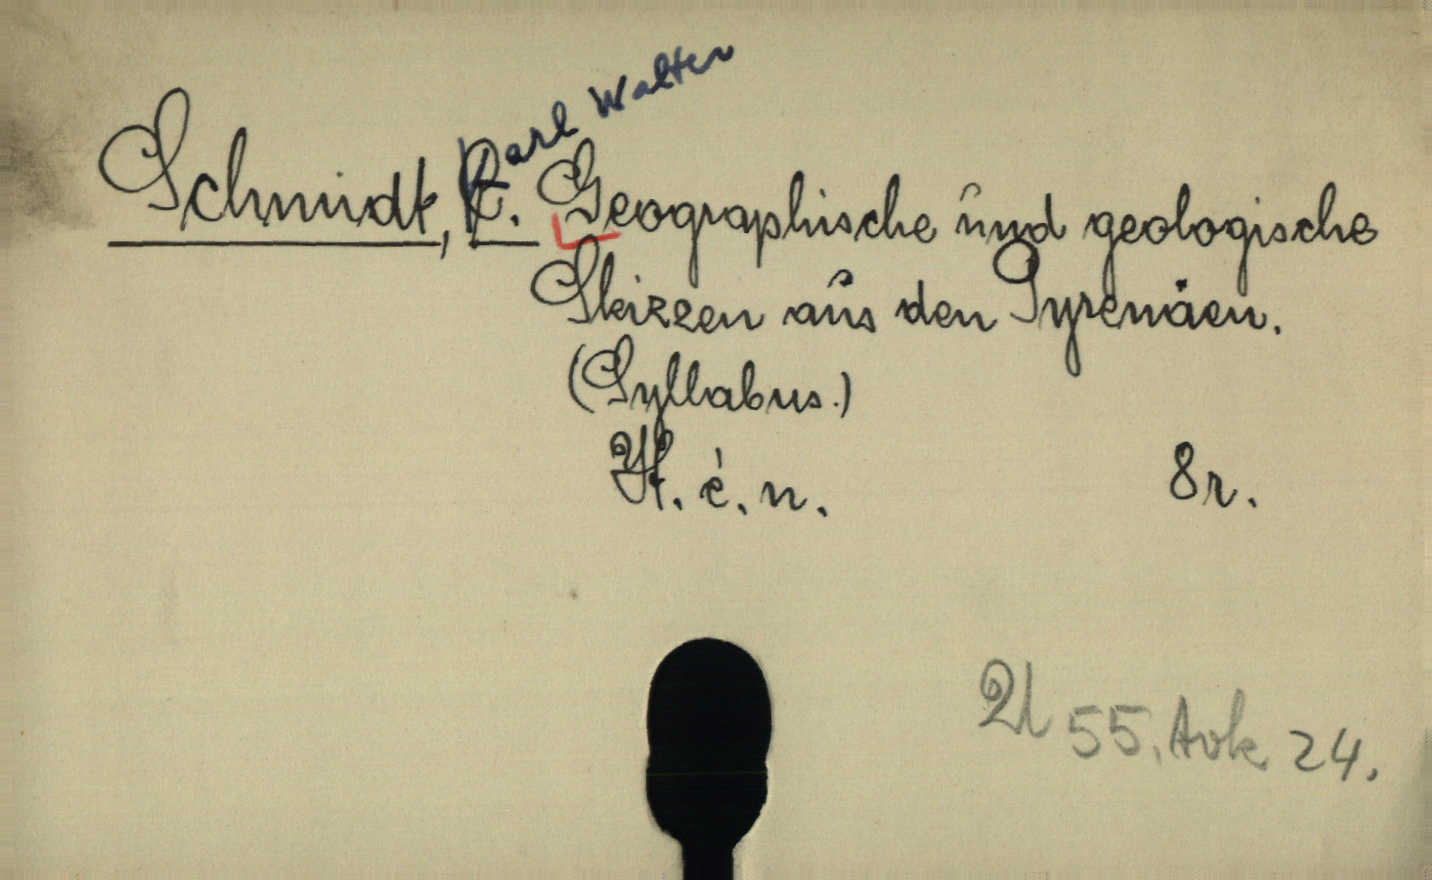 Karl Walter
Schmidt, C. Geographische und geologische
Skizzen aus den Pyrenäen.
(Syllabus.)
H. é. n. 8r.
55. 24.